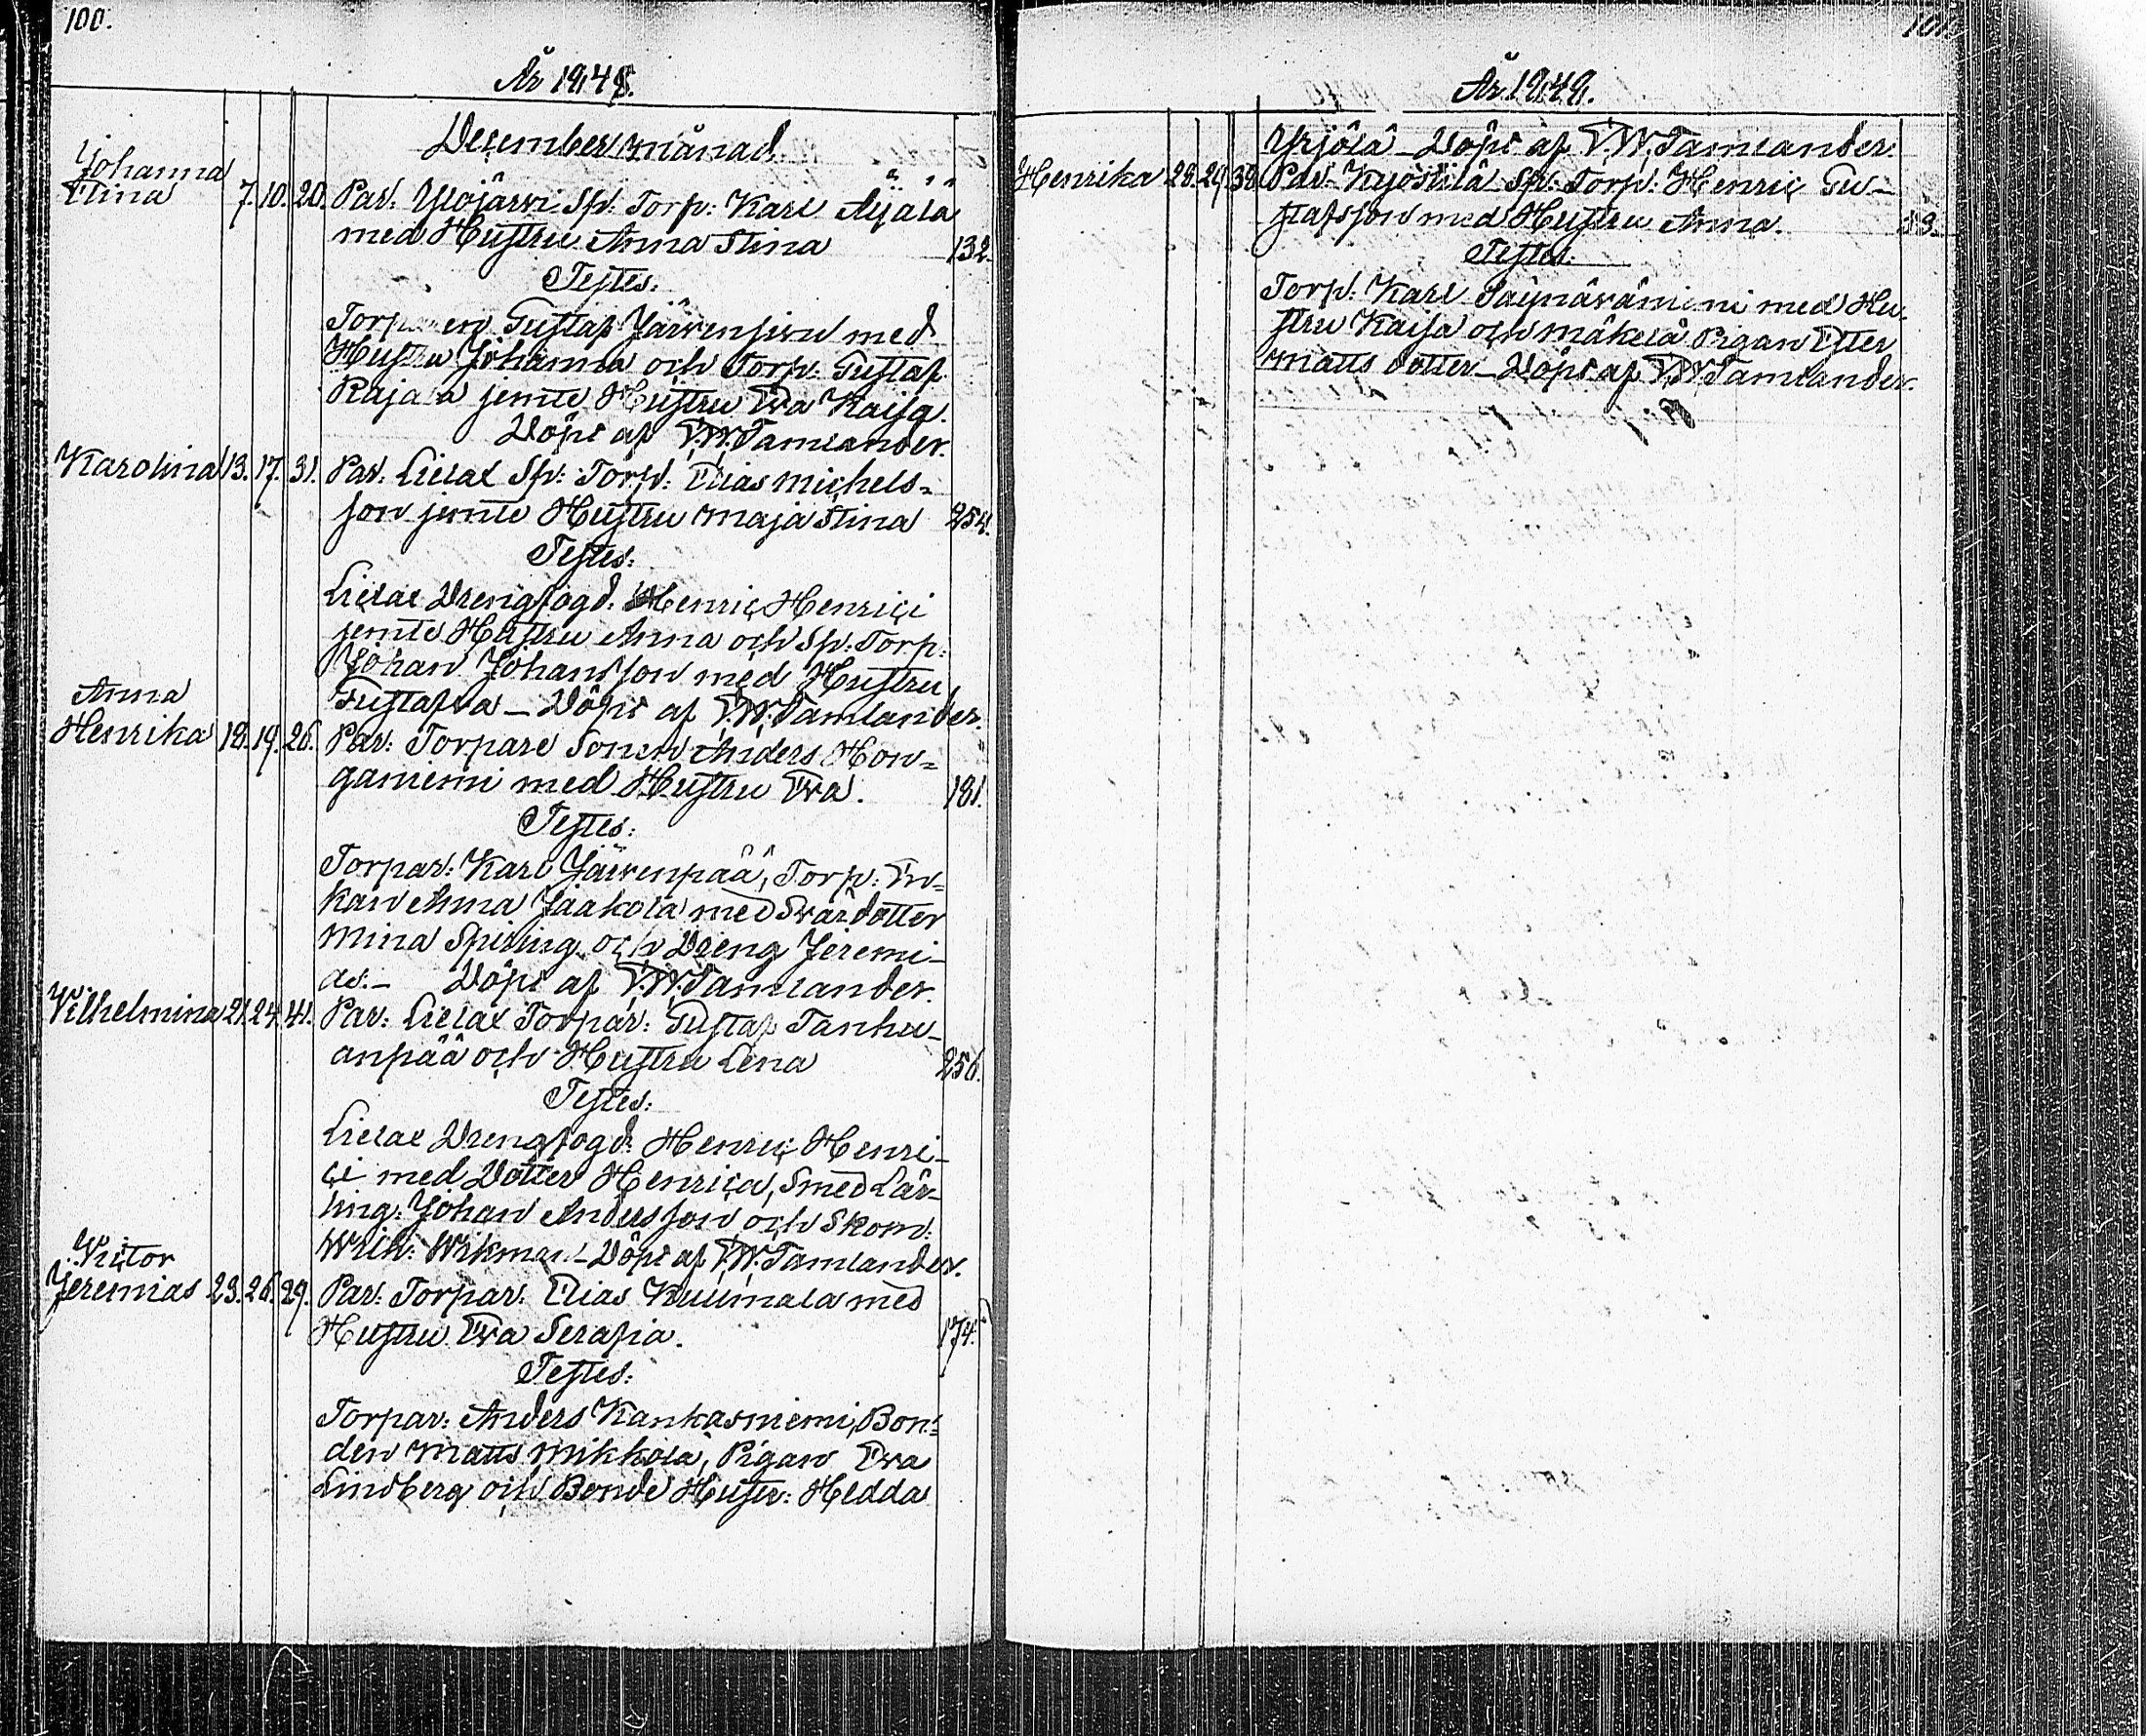 100.
År 1848.
December månad.
Johanna
Stina 7. 10. 20. Par. Ylöjärvi Sp: Torp: Karl Alijala
med Hustru Anna Stina 132.
Testes:
Torparen Gustaf Järvensivu med
Hustru Johanna och Torp. Gustaf
Rajala jemte Hustru Eva Kaisa.
Döpt af F.W. Tamlander.
Karolina 13. 17. 31. Par. Lielax Sp: Torp: Elias Michels-
son jemte Hustru Maja Stina 254.
Testes:
Lielax Drengfogd: Henric Henrici
jemte Hustru Anna och Sp: Torp:
Johan Johansson med Hustru
Gustafva – Döpt af F.W. Tamlander.
Anna
Henrika 18. 19. 26. Par: Torpare Sonen Anders Hon-
ganiemi med Hustru Eva. 181.
Testes:
Torpar: Karl Järvenpää, Torp: En-
kan Anna Jaakola med Svärdotter
Mina Spiring och Dreng Jeremi-
as. – Döpt af F.W. Tamlander.
Vilhelmina 21. 24. 41. Par: Lielax Torpar: Gustaf Tanhu-
anpää och Hustru Lena 256.
Testes:
Lielax Drengfogd: Henric Henri-
ci med Dotter Henrica, Smed Lär-
ling: Johan Andersson och Skom:
Wilh: Wikman – Döpt af F.W. Tamlander.
Victor
Jeremias 23. 26. 29. Par: Torpar: Elias Kuumala med
Hustru Eva Serafia. 174.
Testes:
Torpar: Anders Kankasniemi, Bon-
den Matts Mikkola, Pigan Eva
Lindberg och Bonde Hustr: Hedda
101.
År 1848.
Yrjölä – Döpt af F.W. Tamlander.
Henrika 28. 29. 38. Par. Kyöstilä Sp: Torp: Henric Gu-
stafsson med Hustru Anna. 59.
Testes:
Torp: Karl Säynäväniemi med Hu-
stru Kaisa och Mäkelä Pigan Ester
Matts dotter – Döpt af F.W. Tamlander.